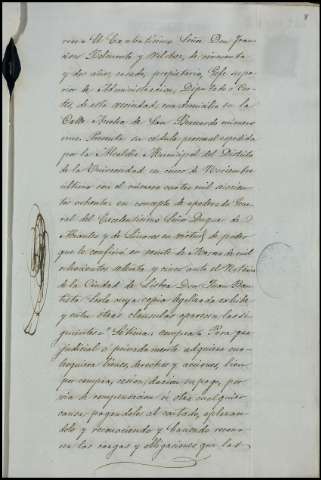 El Excelentisimo Señor Don Juan
Belmonte y Vilches, de cincuenta
y dos años, casado, propietario, Gefe supe-
rior de Administracion, Diputado á Cor-
tes, de esta vecindad, con domicilio en la
Calle Ancha de San Bernardo número
Presenta su cédula personal espedida
por la Alcaldia Municipal del Distrito
de la Universidad en cinco de Noviembre
último con el número cuatro mil seiscien-
tos ochenta en concepto de apoderado Gene-
ral del Excelentisimo Señor Duque de
Abrantes y de Linares en virtud de poder
que le confirió en veinte de Marzo de mil
ochocientos setenta y cinco ante el Notario
de la Ciudad de Lisboa Don Juan Bau-
tista cuya copia legalizada exhibe
y entre otras clausulas aparecen las si-
guientes = Setima: compras Para que
judicial ó privadamente adquiera cua-
lesquiera bienes, derechos y acciones, bien
por compra, cesion, dacion en pago, per-
via de compensacion ú otra cualquier
causa, pagandolos al contado, aplazan-
dolo y reconociendo y haciendo recono-
cer las cargas y obligaciones que las